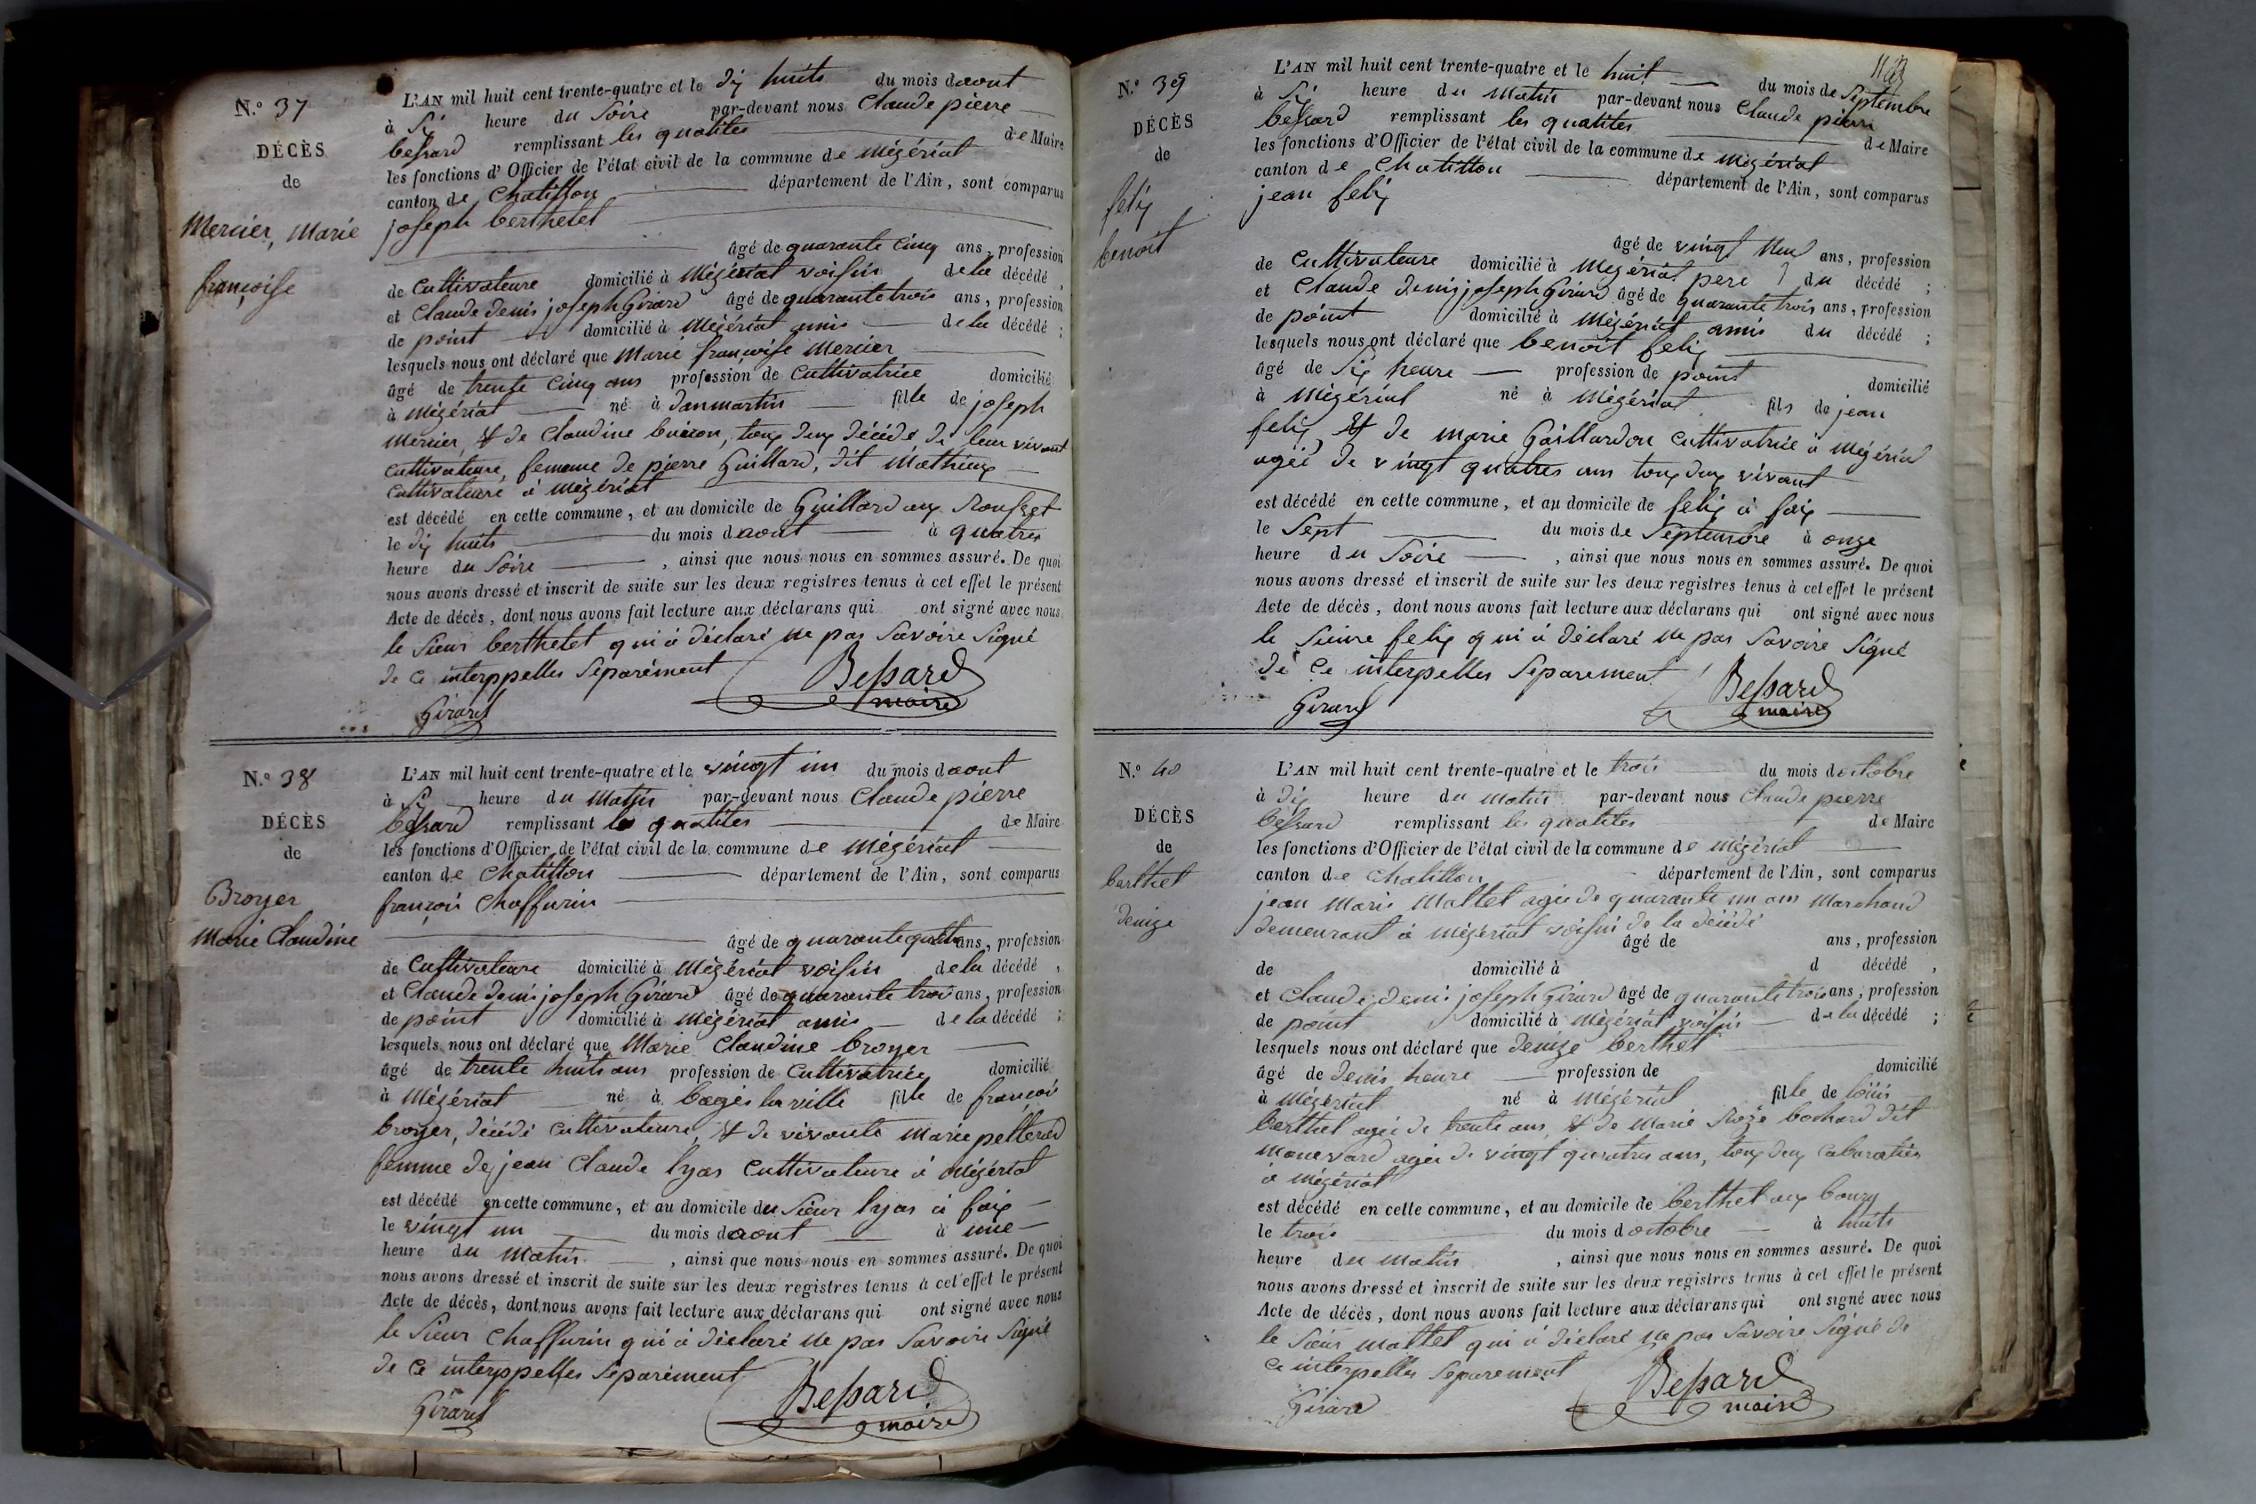 N.° 37
DÉCÈS
de
Mercier, Marie
françoise
L'AN mil huit cent trente-quatre et le dix huits du mois d'aout
à Six heure du Soire par-devant nous Claude pierre
bessard remplissant les qualites de Maire
les fonctions d'Officier de l'état civil de la commune de Mézériat
canton de Chatillon département de l'Ain, sont comparus
joseph berthelet
âgé de quarante cinq ans, profession
de Cultivateure domicilié à Mézériat voisin de la décédé,
et Claude denis joseph Girard âgé de quarante trois ans, profession
de point domicilié à Mézériat amis de la décédé;
lesquels nous ont déclaré que Marie françoise Mercier
âgé de trente cinq ans profession de Cultivatrice domicilié
à Mézériat né à danmartin fille de joseph
Mercier, & de Claudine buiron, toux deux décédé de leur vivant
cultivateure, femme de pierre Guillard, dit Mathieux
Cultivateure à Mézériat
est décédé en cette commune, et au domicile de Guillard aux Rousset
le dix huits du mois d'aout à quatres
heure du Soire, ainsi que nous nous en sommes assuré. De quoi
nous avons dressé et inscrit de suite sur les deux registres tenus à cet effet le présent
Acte de décès, dont nous avons fait lecture aux déclarans qui ont signé avec nous
le Sieur berthelet qui à déclaré ne pas Savoire Signé
de ce interppelles Séparément
Bessard
maire
Girard
N.° 38
DÉCÈS
de
Broyer
Marie Claudine
L'AN mil huit cent trente-quatre et le vingt un du mois d'aout
à Six heure du Matin par-devant nous Claude pierre
bessard remplissant les qualites de Maire
les fonctions d'Officier de l'état civil de la commune de Mézériat
canton de Chatillon département de l'Ain, sont comparus
françois Chaffurin
âgé de quarante quatre ans, profession
de Cultivateure domicilié à Mézériat voisin de la décédé,
et Claude denis joseph Girard âgé de quarante trois ans, profession
de point domicilié à Mézériat amis de la décédé;
lesquels nous ont déclaré que Marie Claudine broyer
âgé de trente huits ans profession de Cultivatrice domicilié
à Mézériat né à bagés la ville fille de françois
broyer, décédé cultivateure, & de vivante Marie pellerad
femme de jean Claude lyas Cultivateure à Mézériat
est décédé en cette commune, et au domicile du Sieur lyas à faix
le vingt un du mois d'aout à une
heure du Matin, ainsi que nous nous en sommes assuré. De quoi
nous avons dressé et inscrit de suite sur les deux registres tenus à cet effet le présent
Acte de décès, dont nous avons fait lecture aux déclarans qui ont signé avec nous
le Sieur Chaffurin qui à déclaré ne pas Savoire Signé
de ce interppelles Séparément
Bessard
maire
Girard
N.° 39
DÉCÈS
de
felix
benoit
L'AN mil huit cent trente-quatre et le huit du mois de Septembre
à Six heure du Matin par-devant nous Claude pierre
bessard remplissant les qualites de Maire
les fonctions d'Officier de l'état civil de la commune de Mézériat
canton de Chatillon département de l'Ain, sont comparus
jean felix
âgé de vingt neuf ans, profession
de Cultivateure domicilié à Mézériat pere du décédé;
et Claude denis joseph Girard âgé de quarante trois ans, profession
de point domicilié à Mézériat amis du décédé;
lesquels nous ont déclaré que benoit felix
âgé de Six heure profession de point domicilié
à Mézériat né à Mézériat fils de jean
felix & de marie Gaillardon cultivatrice à Mézériat
agéé de vingt quatres ans toux deux vivant
est décédé en cette commune, et au domicile de felix à faix
le Sept du mois de Septembre à onze
heure du Soire, ainsi que nous nous en sommes assuré. De quoi
nous avons dressé et inscrit de suite sur les deux registres tenus à cet effet le présent
Acte de décès, dont nous avons fait lecture aux déclarans qui ont signé avec nous
le Sieure felix qui à déclaré ne pas Savoire Signé
de ce interpelles Séparement
Bessard
maire
Girard
N.° 40
DÉCÈS
de
berthet
denize
L'AN mil huit cent trente-quatre et le trois du mois d'octobre
à dix heure du matin par-devant nous Claude pierre
bessard remplissant les qualites de Maire
les fonctions d'Officier de l'état civil de la commune de Mézériat
canton de Chatillon département de l'Ain, sont comparus
jean Marie Mattet agée de quarante un ans Marchand
demeurant à Mézériat voisin de la décédé
âgé de ans, profession
de domicilié à d décédé,
et Claude denis joseph Girard âgé de quarante trois ans, profession
de point domicilié à Mézériat voisin de la décédé;
lesquels nous ont déclaré que denize berthet
âgé de demis heure profession de domicilié
à Mézériat né à Mézériat fille de loüis
berthet agée de trente ans, & de Marie Roze bochard dit
manevard agée de vingt quatres ans, toux deux Cabaratier
à Mézériat
est décédé en cette commune, et au domicile de berthet aux bourg
le trois du mois d'octobre à huits
heure du Matin, ainsi que nous nous en sommes assuré. De quoi
nous avons dressé et inscrit de suite sur les deux registres tenus à cet effet le présent
Acte de décès, dont nous avons fait lecture aux déclarans qui ont signé avec nous
le Sieur mattet qui à déclaré ne pas Savoire Signé de
ce interpelles Séparement
Bessard
maire
Girard